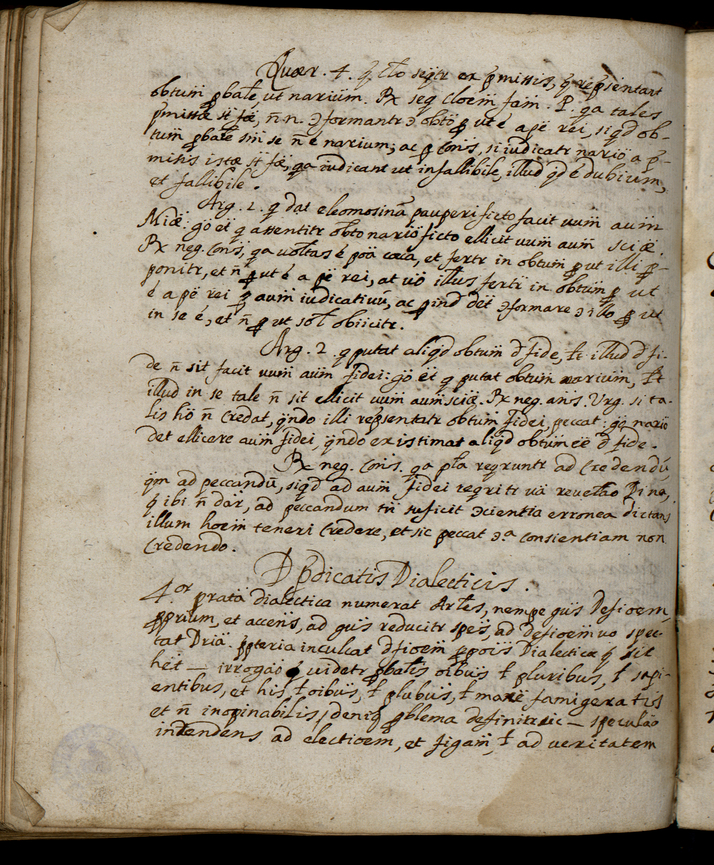 Quær. 4. q̃ cl̃o seq̃tr ex p̃missis, q̃ rep̃sentant
obtum̃ p̃bal̃e, ut narium̃. Rx seq̃ cl̃oem̃ falm̃. P. q̃a tales
p̃missæ st̃ fæ̃, ñ.n. ɔformantr ɔ obto p̃ ut ẽ a p̃e rei, siq̃d ob-
tum p̃bal̃e sm̃ se ñ ẽ narium; ac p̃ cons̃, si iudicatr nario a p̃-
missis istæ st̃ fæ̃, q̃a iudicant ut infallibile, illud q̃d ẽ dubium,
et fallibile.
Arg. 2. q̃ dat eleomosinã pauperi ficto facit uum̃ aum̃
Miæ̃. g̃o et q̃ assentitr obto nario ficto ellicit uum̃ aum̃ sciæ̃.
Rx neg. Cons̃, q̃a uoltas ẽ poã cæca, et fertr in obtum p̃ ut illi p̃-
ponitr, et ñ p̃ ut ẽ a p̃e rei, at uõ illus fertr in obtum p̃ ut
ẽ a p̃e rei p̃ aum̃ iudicatiuũ, ac p̃ind̃ det ɔformare ɔ illo p̃ ut
in se ẽ, et ñ p̃ ut sol̃ obiicitr.
Arg. 2. q̃ putat aliq̃d obtum̃ d̃ fide, łt illud d̃ fi-
de ñ sit facit uum̃ aum̃ fidei: g̃o et q̃ putat obtum̃ narium̃, łt
illud in se tale ñ sit ellicit uum̃ aum̃ sciæ̃. Rx neg. añs. Urg. si ta-
lis hõ ñ credat, q̃ndo illi rep̃sentatr obtum̃ fidei, peccat: g̃o nario
det ellicere aum̃ fidei, q̃ndo existimat aliq̃d obtum̃ eẽ d̃ fide.
Rx neg. Cons̃. q̃a pl̃a req̃runtr ad Credendũ,
q̃m ad peccandũ, siq̃d ad aum̃ fidei reqritr uã reuelãõ Diuina,
q̃ ibi ñ dãr, ad peccandum tñ suficit ɔcientia erronea dictans
illum hoem̃ teneri Credere, et sic peccat ɔ.ᵃ consientiam non
Credendo.
D̃ p̃dicatis Dialecticis.
4.ᵒʳ p̃rata dialectica numerat Artl̃es, nempe guis Defioem,
p̃prium, et accens̃, ad guis reducitr speĩs, ad defioem uo spec-
tat Driã. p̃pteria inculcat d̃fioem̃ p̃pois Dialecticæ q̃ sit
hẽt — irrogaõ q̃ uidetr p̃balis oibus ł pluribus, ł sapi-
entibus, et his, ł oibus, ł plubus, ł maxẽ famigeratis
et ñ inopinabilis, deniq̃ p̃blema definit sic — speculãõ
intendens ad electioem, et fugam̃, ł ad ueritatem